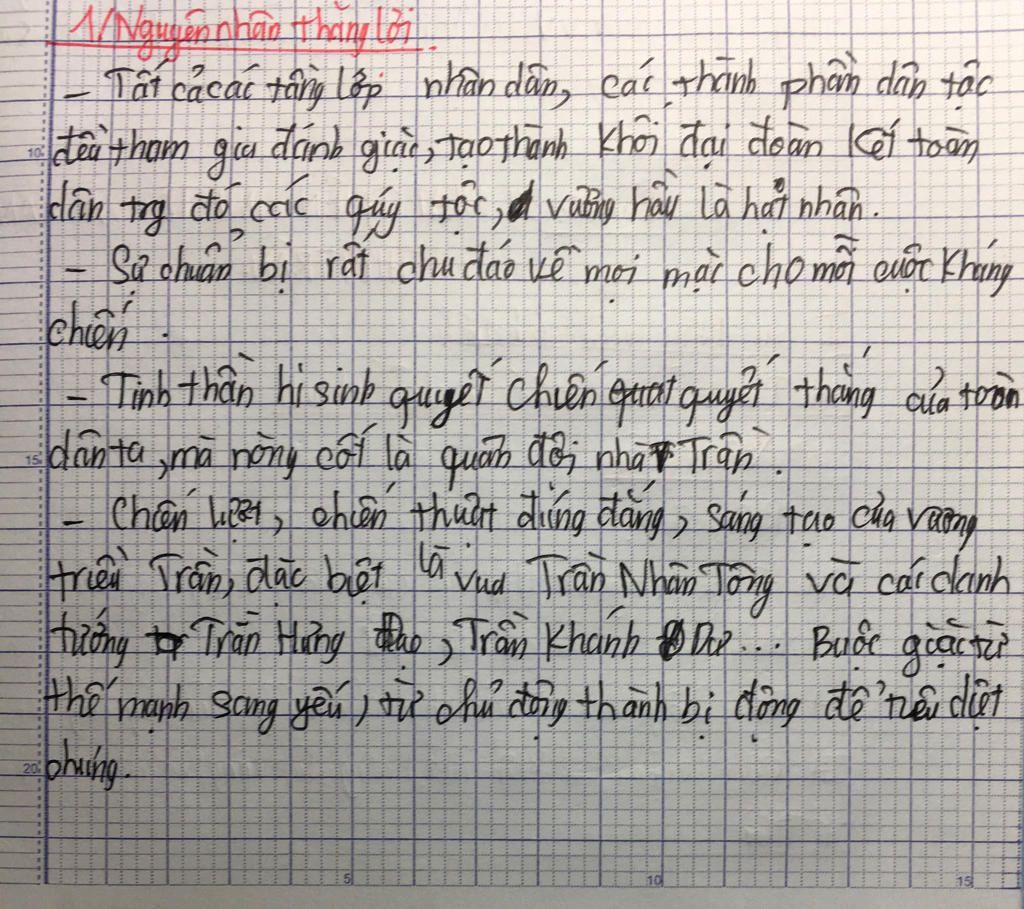 1/ Nguyên nhân thắng lợi.
- Tất cả các tầng lớp nhân dân, các thành phần dân tộc
đều tham gia đánh giặc, tạo thành khối đại đoàn kết toàn
dân trg đó các quý tộc, vương hầu là hạt nhân.
- Sự chuẩn bị rất chu đáo về mọi mặt cho mỗi cuộc kháng
chiến.
- Tinh thần hi sinh quyết chiến quyết thắng của toàn
dân ta, mà nòng cốt là quân đội nhà Trần.
- Chiến lược, chiến thuật đúng đắng, sáng tạo của vương
triều Trần, đặc biệt là vua Trần Nhân Tông và các danh
tướng Trần Hưng Đạo, Trần Khánh Dư... Buộc giặc từ
thế mạnh sang yếu, từ chủ động thành bị động để tiêu diệt
chúng.
10
15
20
5
10
15